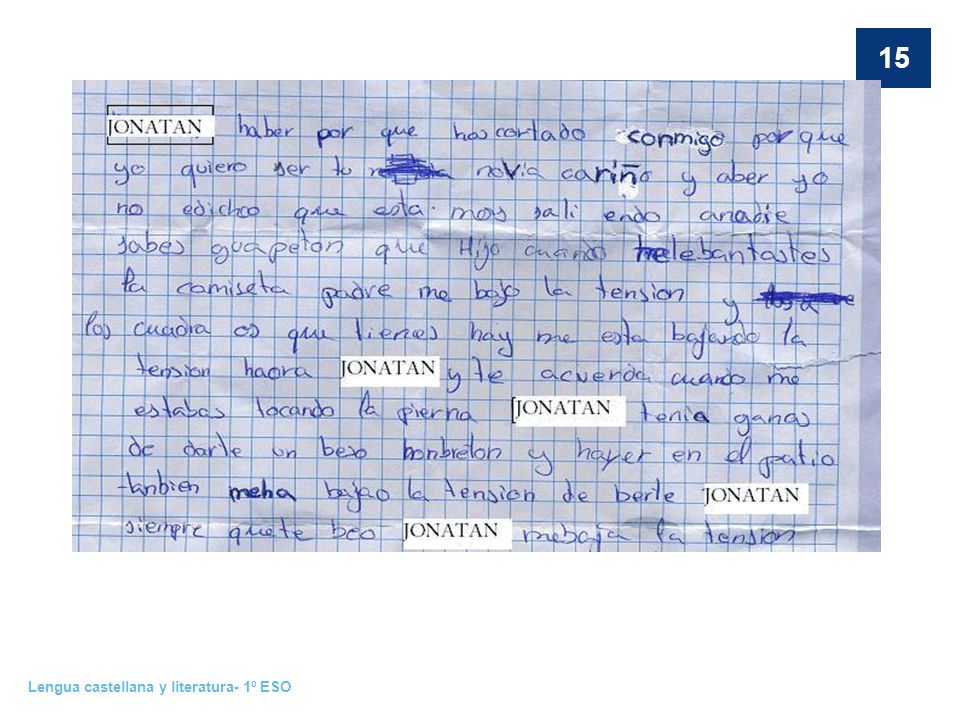 15
JONATAN haber por que has cortado conmigo por que
yo quiero ser tu novia cariño y aber yo
no edichco que esta mos sali endo anadie
sabes guapeton que Hijo cuando melebantastes
la camiseta padre me bajo la tension y
los cuadra os que tienes hay me esta bajando la
tension haora JONATAN y te acuerda cuando me
estabas tocando la pierna JONATAN tenia ganas
de darte un beso bonbreton y hayer en el patio
tanbien meha bajao la tension de berte JONATAN
siempre quete beo JONATAN mebaja la tension
Lengua castellana y literatura- 1º ESO